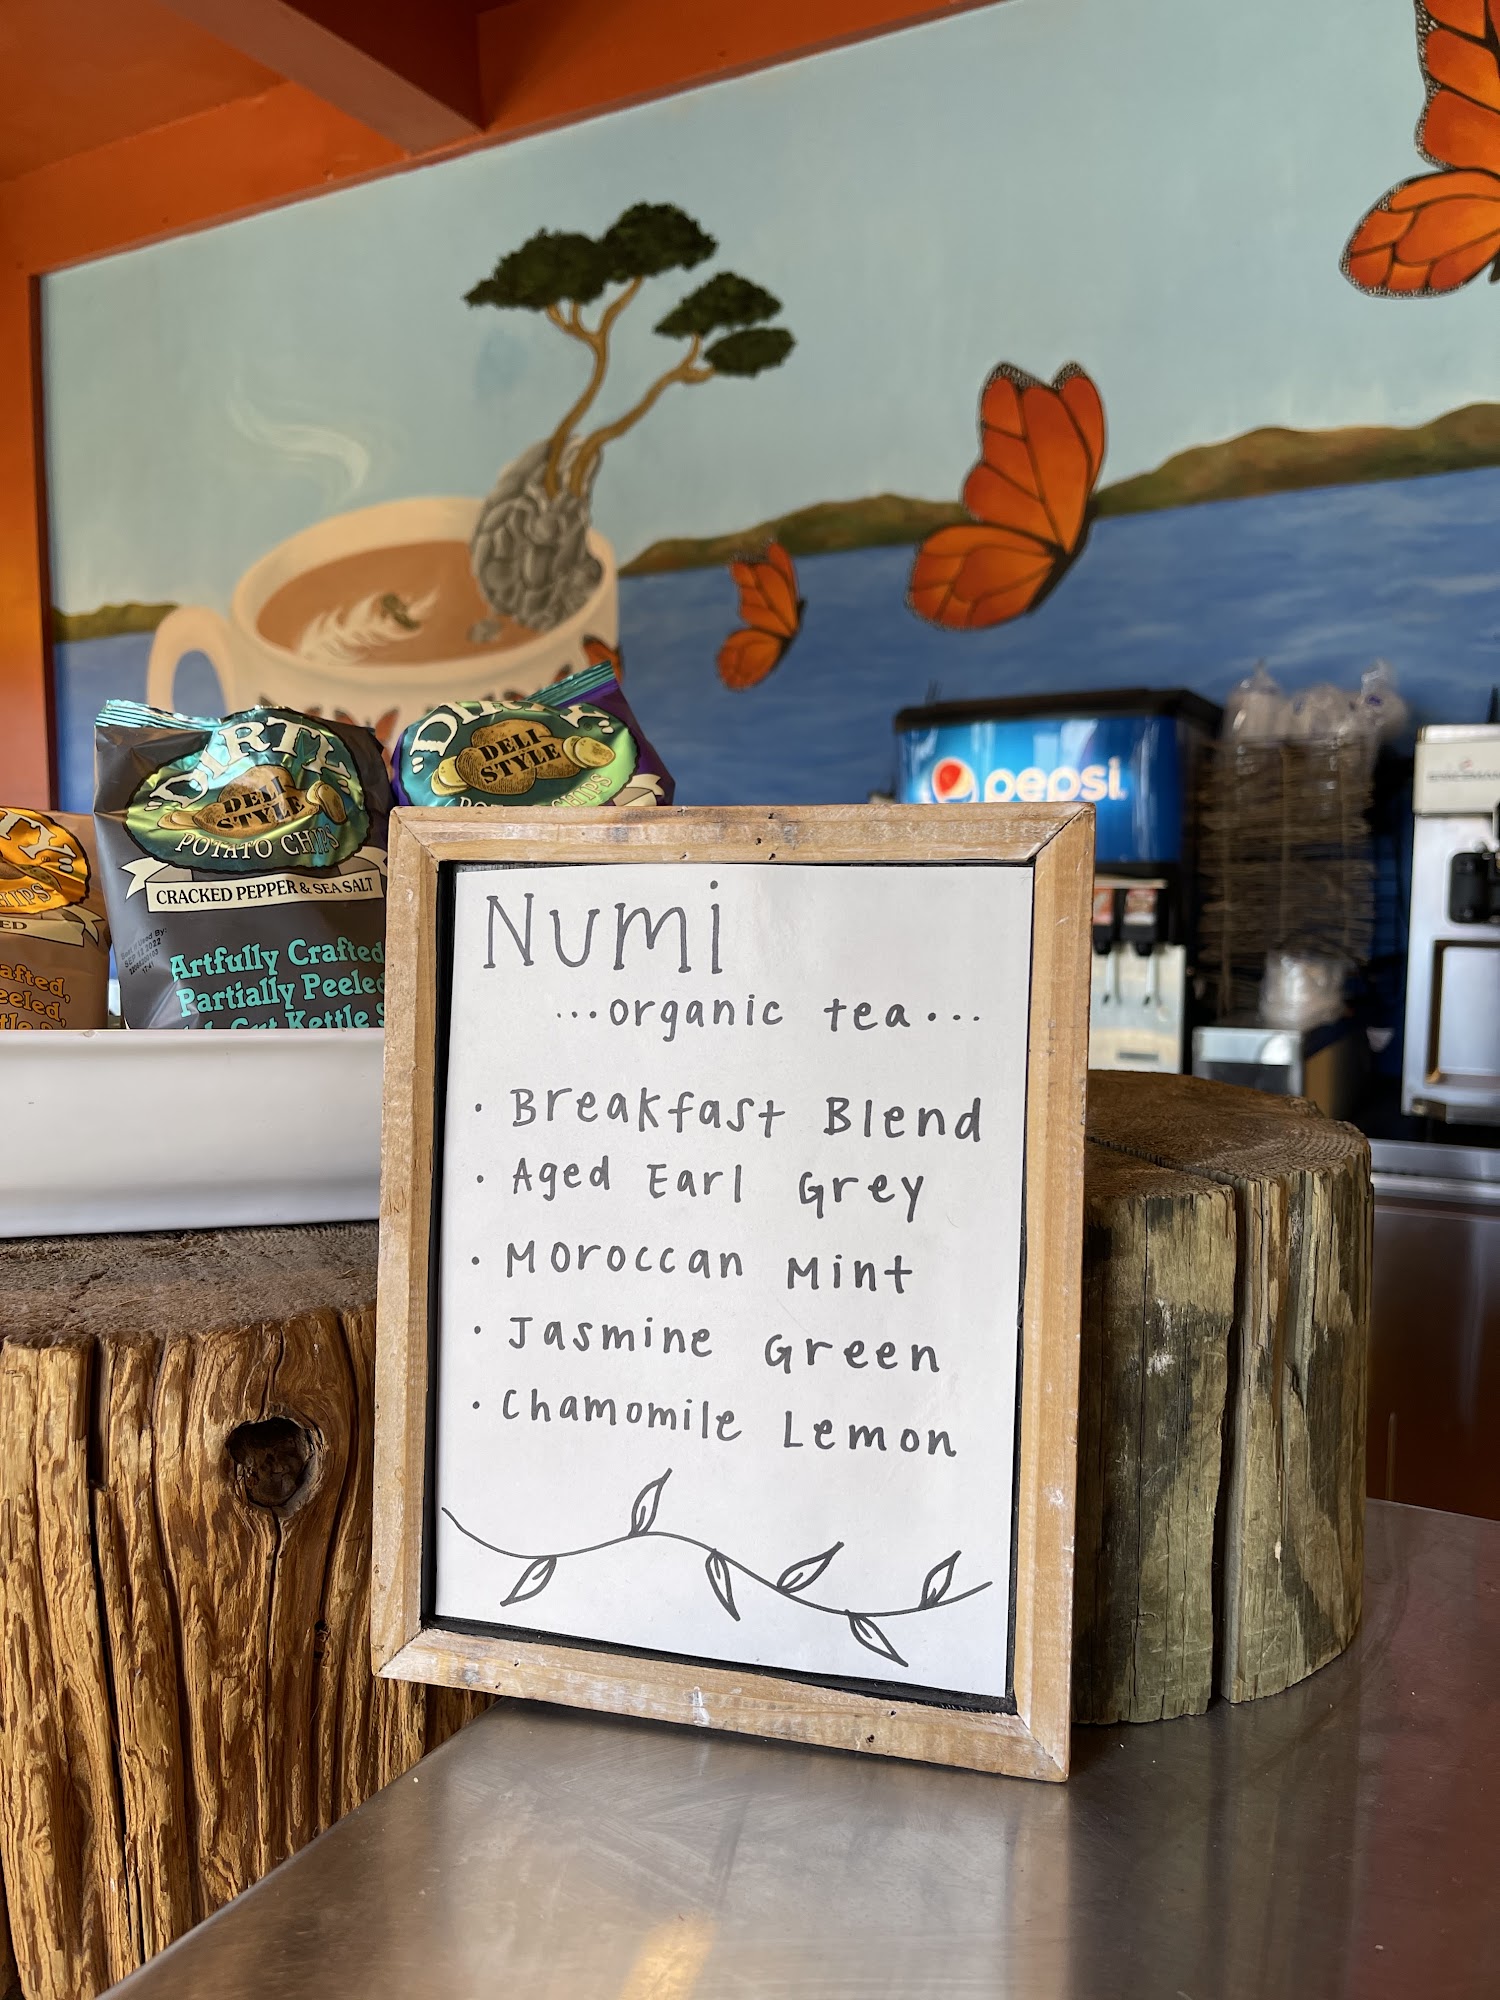 Numi
...organic tea...
· Breakfast Blend
· Aged Earl Grey
· Moroccan Mint
· Jasmine Green
· Chamomile Lemon
"DIRTY"
DELI
STYLE
POTATO CHIPS
CRACKED PEPPER & SEA SALT
Best if Used By:
SEP 12 2022
Artfully Crafted,
Partially Peeled
Cut Kettle
"DIRTY"
DELI
STYLE
POTATO CHIPS
CHIPS
pepsi